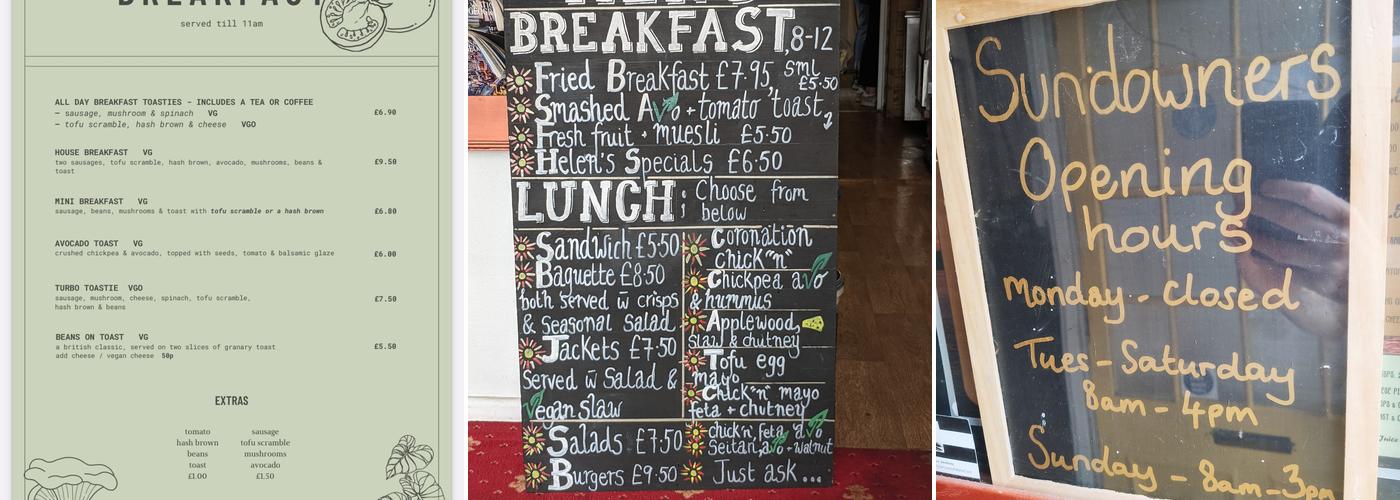 BREAKFAST
served till 11am
ALL DAY BREAKFAST TOASTIES - INCLUDES A TEA OR COFFEE
£6.90
— sausage, mushroom & spinach VG
— tofu scramble, hash brown & cheese VGO
HOUSE BREAKFAST VG
£9.50
two sausages, tofu scramble, hash brown, avocado, mushrooms, beans &
toast
MINI BREAKFAST VG
£6.80
sausage, beans, mushrooms & toast with tofu scramble or a hash brown
AVOCADO TOAST VG
£6.00
crushed chickpea & avocado, topped with seeds, tomato & balsamic glaze
TURBO TOASTIE VGO
£7.50
sausage, mushroom, cheese, spinach, tofu scramble,
hash brown & beans
BEANS ON TOAST VG
£5.50
a british classic, served on two slices of granary toast
add cheese / vegan cheese 50p
EXTRAS
tomato
hash brown
beans
toast
£1.00
sausage
tofu scramble
mushrooms
avocado
£1.50
BREAKFAST, 8-12
Fried Breakfast £7.95, sml £5.50
Smashed Avo + tomato toast,
Fresh fruit + muesli £5.50
Helen's Specials £6.50
LUNCH: Choose from
below
Sandwich £5.50
Baguette £8.50
both served w crisps
& Seasonal Salad
Jackets £7.50
Served w Salad &
Vegan Slaw
Salads £7.50
Burgers £9.50
Coronation
chick"n"
Chickpea avo
& hummus
Applewood,
slaw & chutney
Tofu egg
mayo
Chick"n" mayo
feta + chutney
chick'n, feta, avo
Seitan, avo + walnut
Just ask...
Sundowners
Opening
hours
Monday - closed
Tues - Saturday
8am - 4pm
Sunday - 8am-3pm